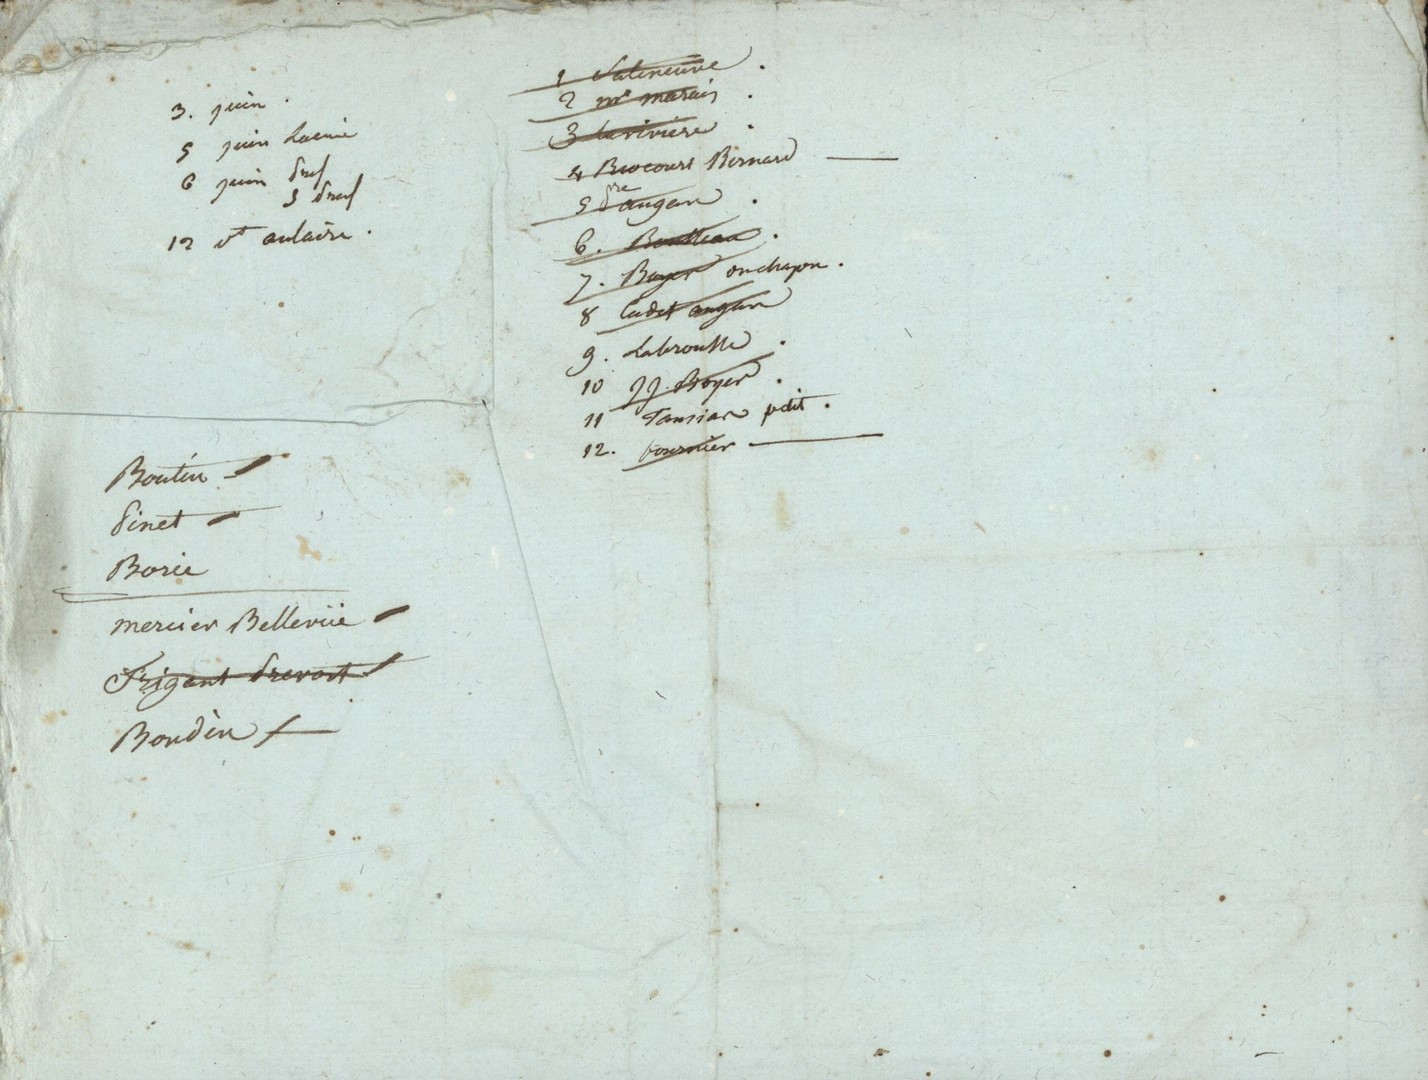 3. juin.
5 juin Lacrie
6 juin
12 st aulaire.
1 Salineuve.
2 mr marais.
3 Larivière.
4 Brocours Bernard
5 dre augan.
6. Boulleau.
7. Boyer onchapon.
8 Cadet augan
9. Labrousse.
10 JJ. Boyer.
11 Tamiar petit.
12. fournier
Boutin
dinet
Borie
mercier Bellevüe
Frigant drevost
Bondin